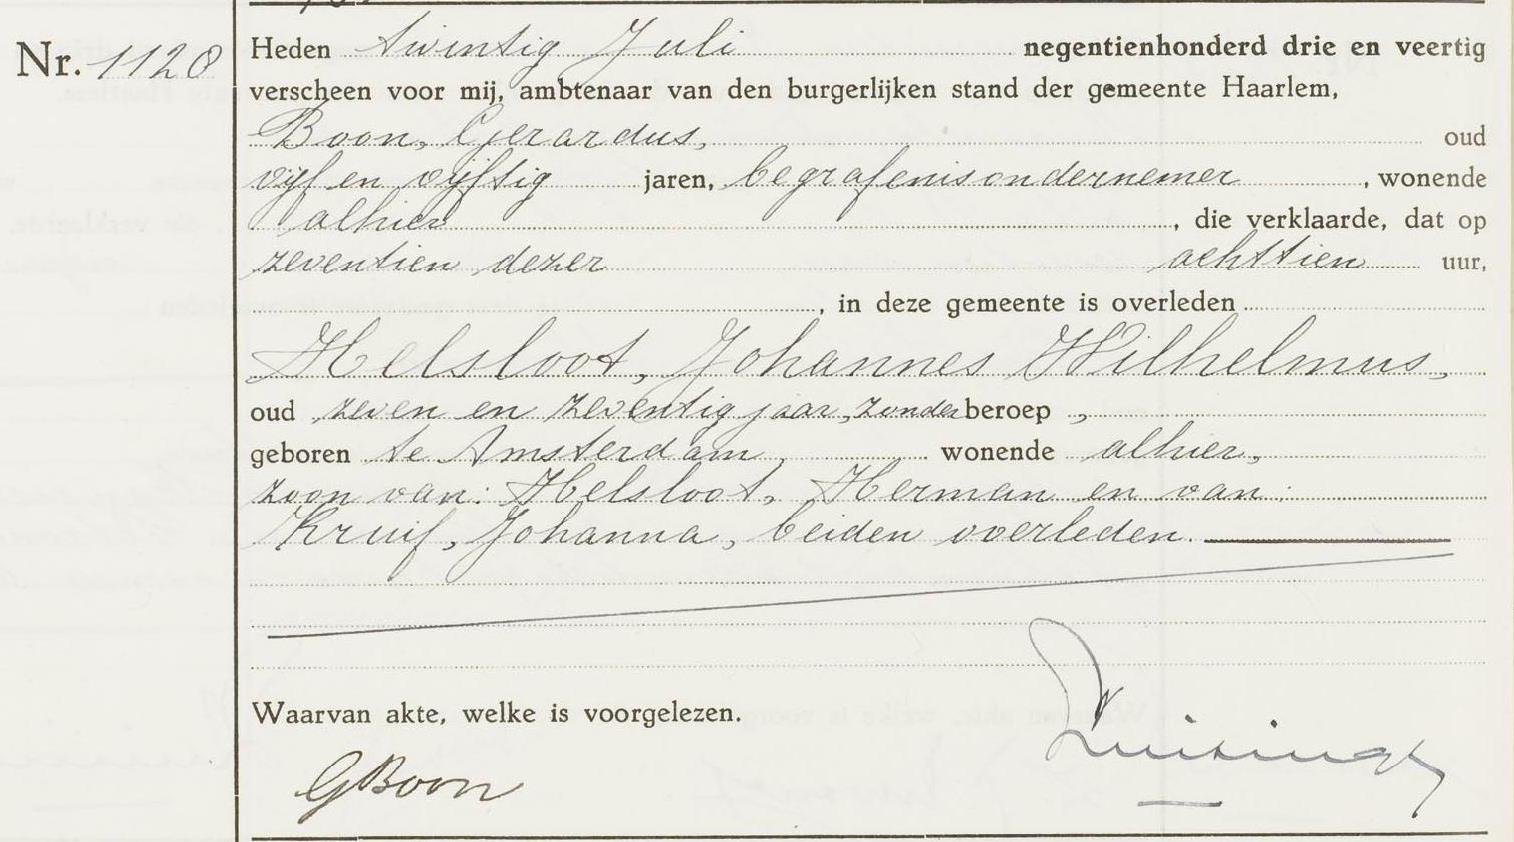 Nr. 1128
Heden twintig Juli negentienhonderd drie en veertig
verscheen voor mij, ambtenaar van den burgerlijken stand der gemeente Haarlem,
Boon, Gerardus, oud
vijf en vijftig jaren, begrafenisondernemer, wonende
alhier, die verklaarde, dat op
zeventien dezer achttien uur,
, in deze gemeente is overleden
Helsloot, Johannes Wilhelmus,
oud zeven en zeventig jaar, zonder beroep,
geboren te Amsterdam, wonende alhier,
zoon van: Helsloot, Herman en van
Kruif, Johanna, beiden overleden.
Waarvan akte, welke is voorgelezen.
GBoon